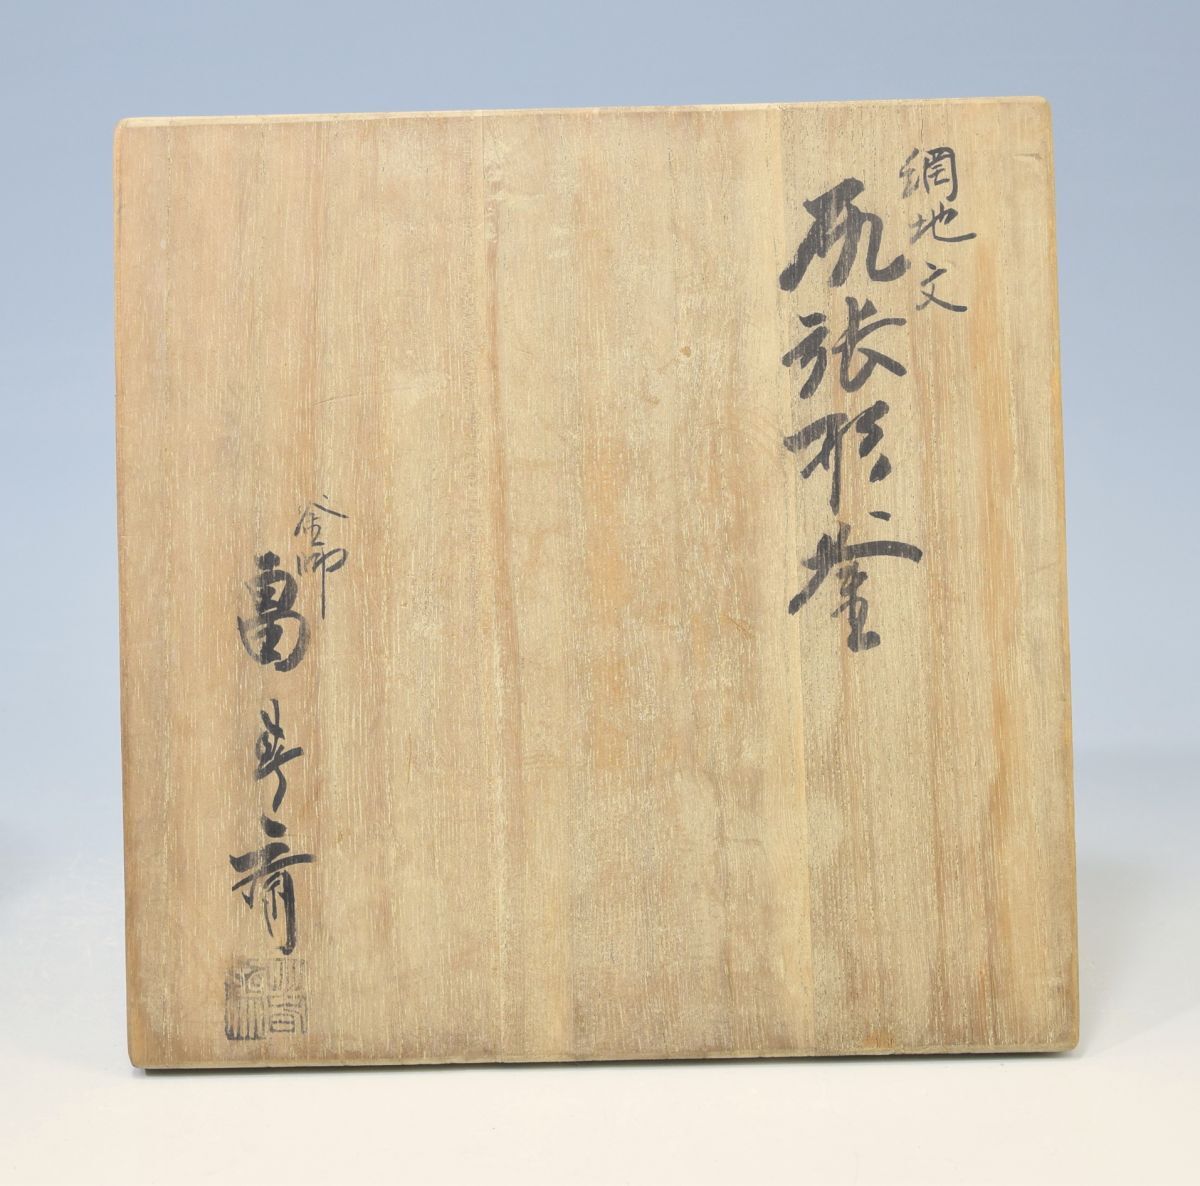 網地文
尻張形釜
釜師
畠春斎